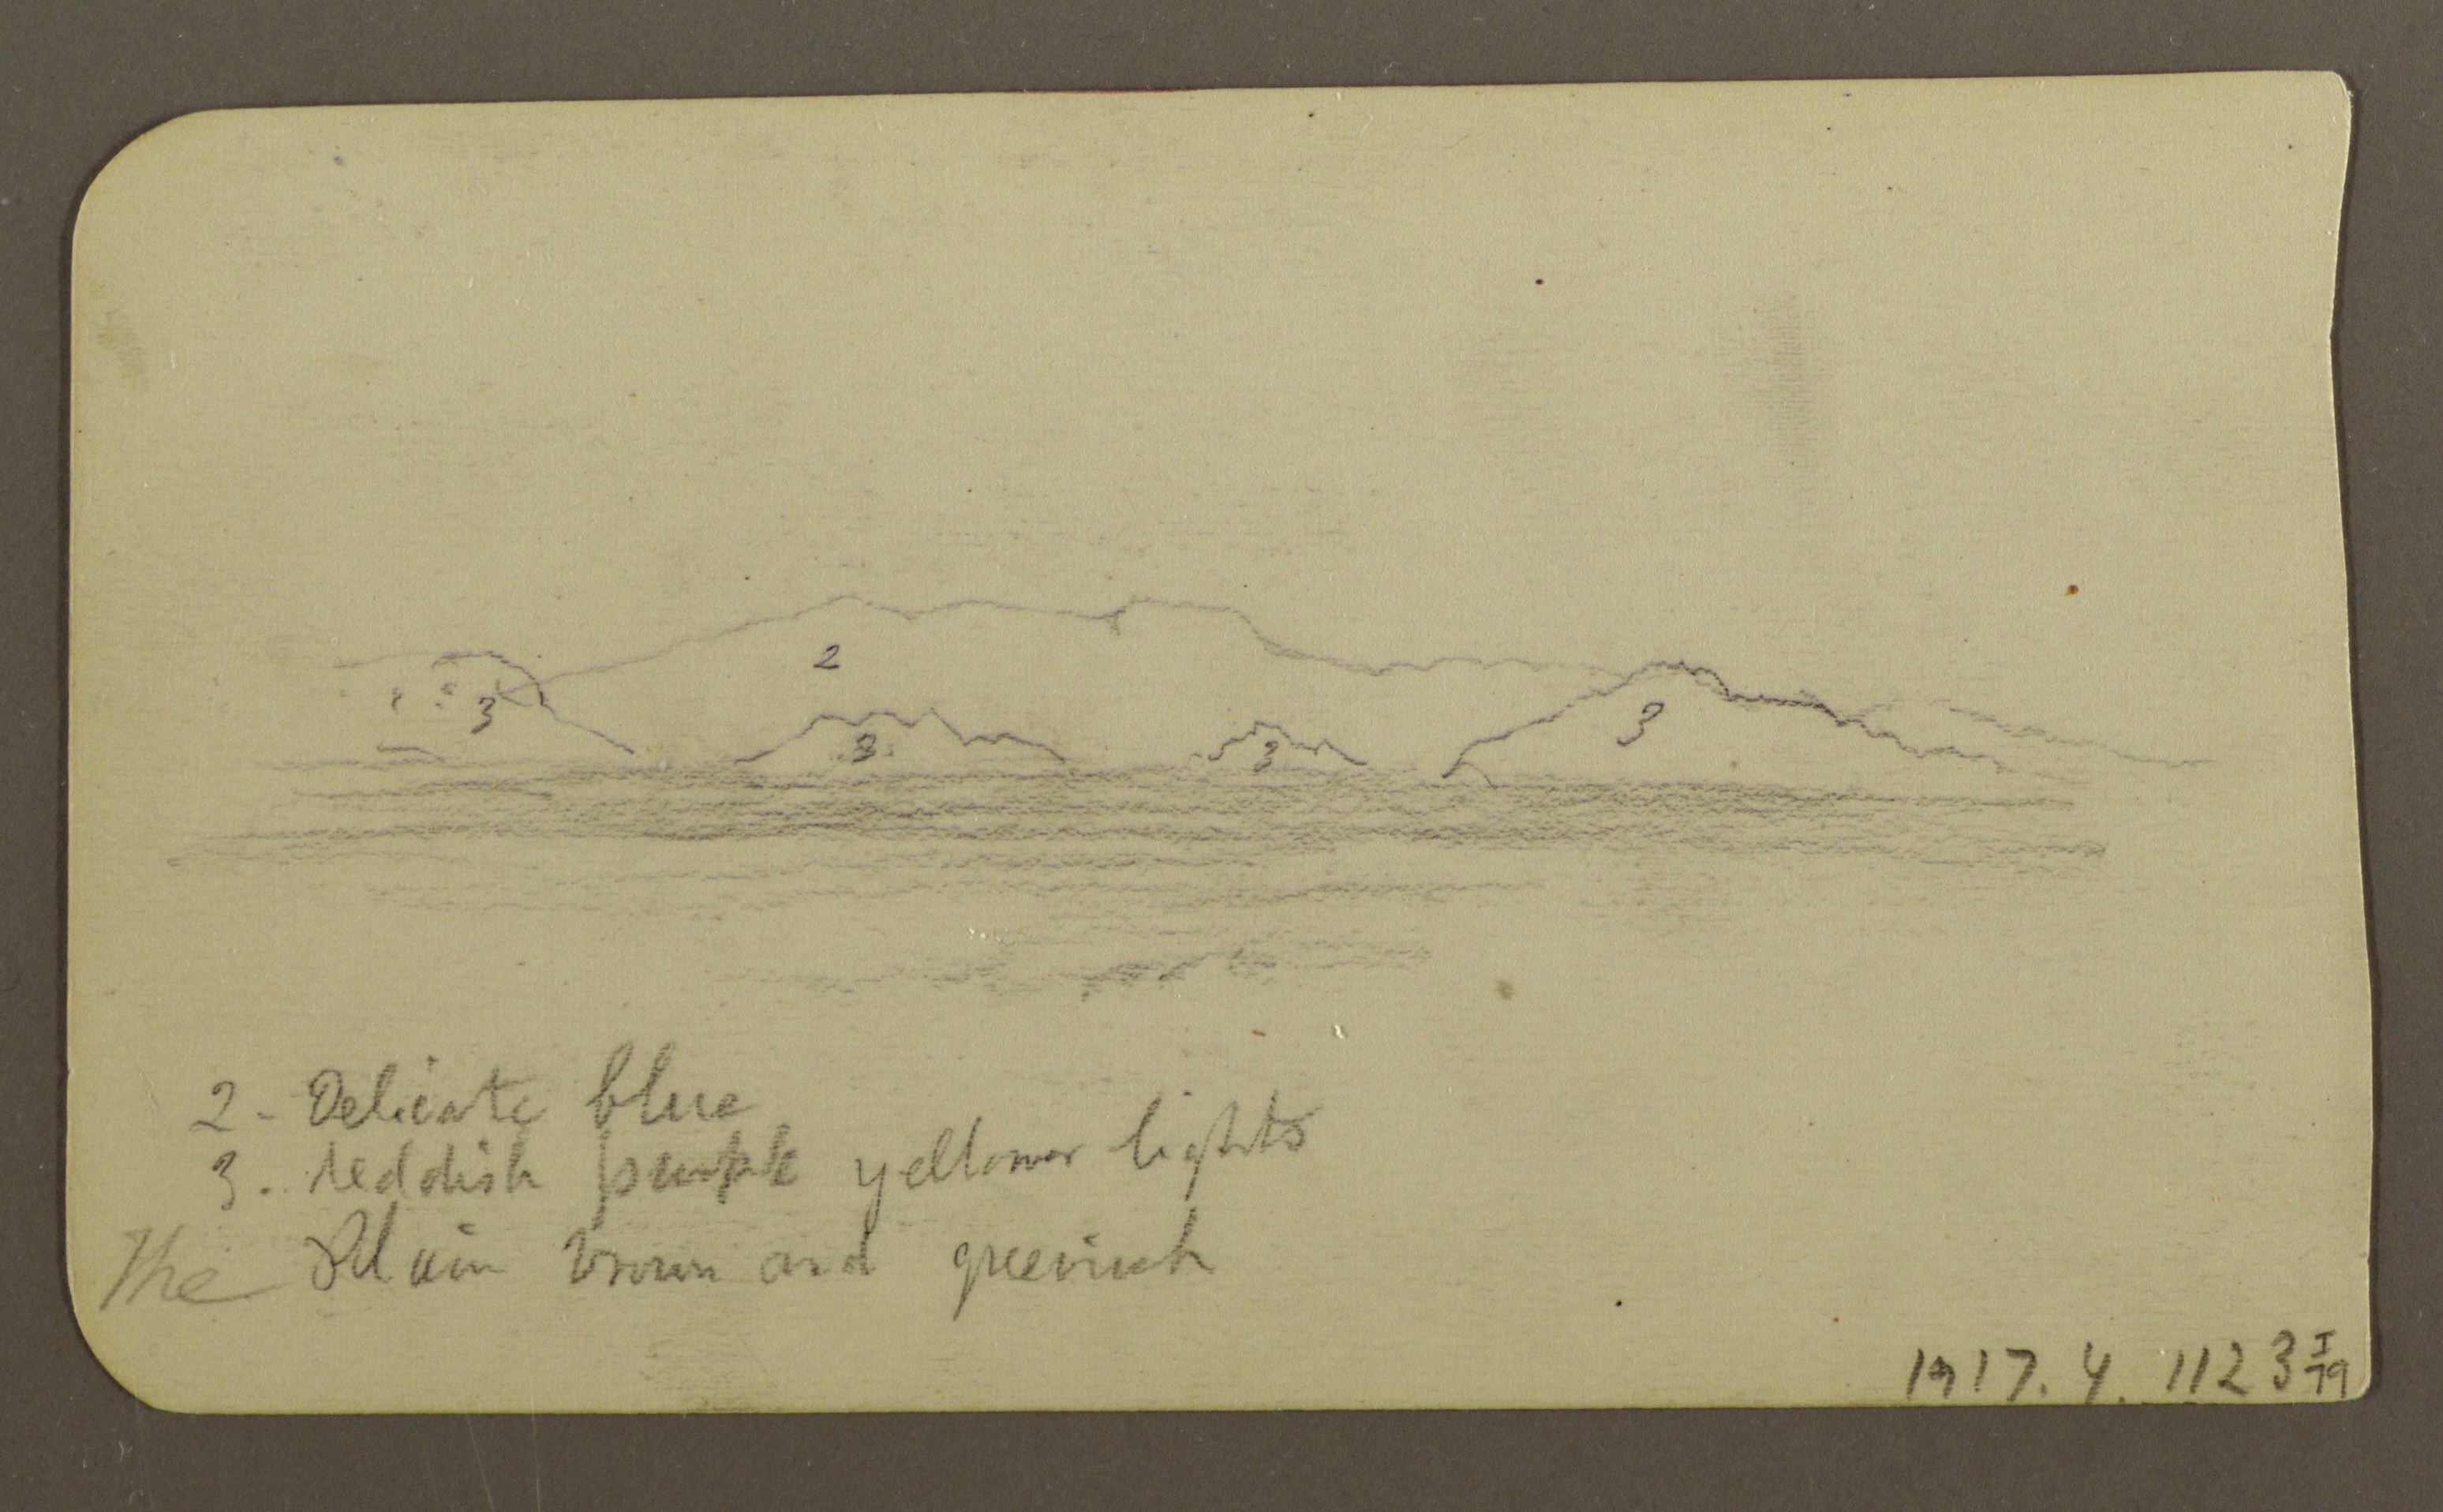 2
3
3
3
3
2 - Delicate blue
3. reddish purple yellower lights
The Plain brown and greenish
1917. 4. 112 3 I/79